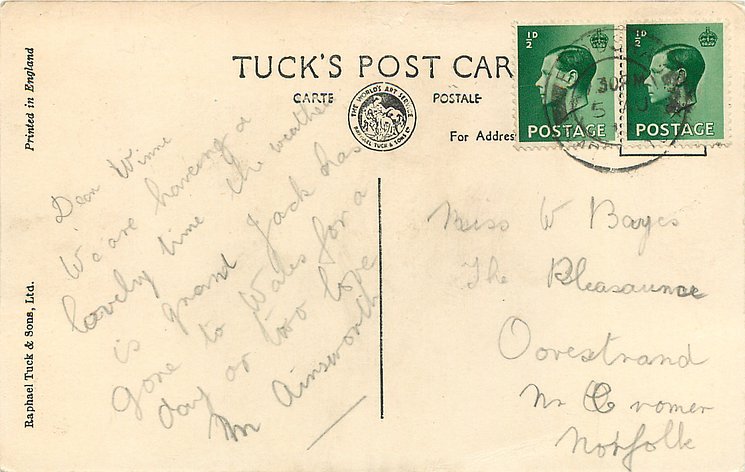 TUCK'S POST CAR
CARTE
POSTALE
THE WORLD'S ART SERVICE
RAPHAEL TUCK & SONS LTD
For Address
½D
POSTAGE
½D
POSTAGE
30PM
5
Printed in England
Raphael Tuck & Sons, Ltd.
Dear Winne
We are having a
lovely time the weather
is grand Jack has
gone to Wales for a
day or two love
Mr Ainsworth
Miss W Bayes
The Pleasaunce
Oovestrand
Nr Cromer
Norfolk